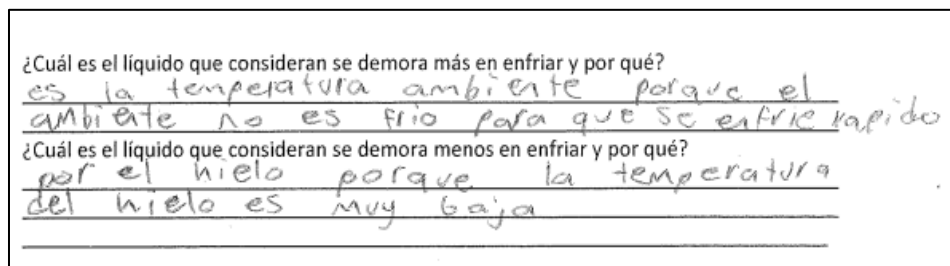 ¿Cuál es el líquido que consideran se demora más en enfriar y por qué?
es la temperatura ambiente porque el
ambiente no es frio para que se enfrie rapido
¿Cuál es el líquido que consideran se demora menos en enfriar y por qué?
por el hielo porque la temperatura
del hielo es muy baja